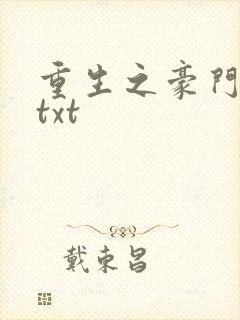 重生之豪門
txt
戴東昌